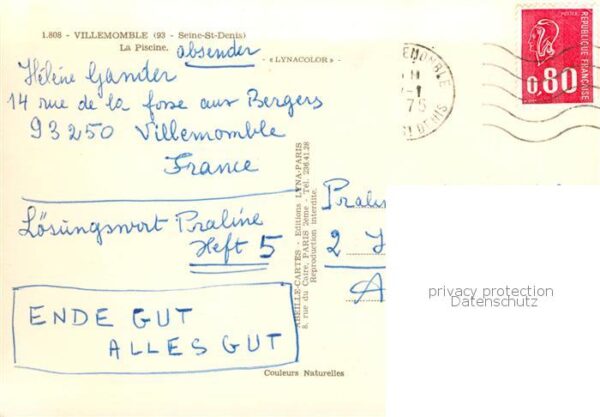 1.808 - VILLEMOMBLE (93 - Seine-St-Denis)
La Piscine.
- «LYNACOLOR» -
absender
Hélène Gander
14 rue de la fosse aux Bergers
93250 Villemomble
France
Lösungswort Praline
Heft 5
ENDE GUT
ALLES GUT
ABEILLE-CARTES - Editions LYNA-PARIS
8, rue du Caire, PARIS 2ème - Tél. 236.41.28
Reproduction interdite.
Couleurs Naturelles
75
POSTES
0,80
REPUBLIQUE FRANÇAISE
Pralin
2
A
privacy protection
Datenschutz